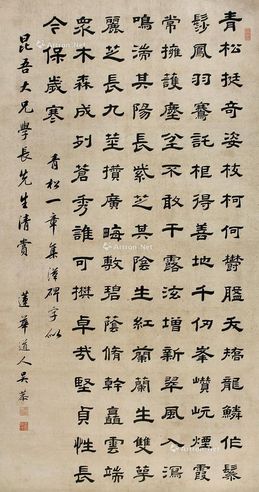 青松挺奇姿枝柯何鬱盤夭撟龍鱗作
鳳羽騫託相得善地千仞峯巑岏煙霞
常擁護塵坌不敢干露泫增新翠風入瀉
鳴湍其陽長紫芝其陰生紅蘭蘭生雙萼
麗芝長九莖攢廣畮敷碧蔭脩幹矗雲端
眾木森成列蒼秀誰可擬卓哉堅貞性長
令保歲寒 青松一章集漢碑字似
昆吾大兄學長先生清賞 蓮華道人吳
Artron.Net